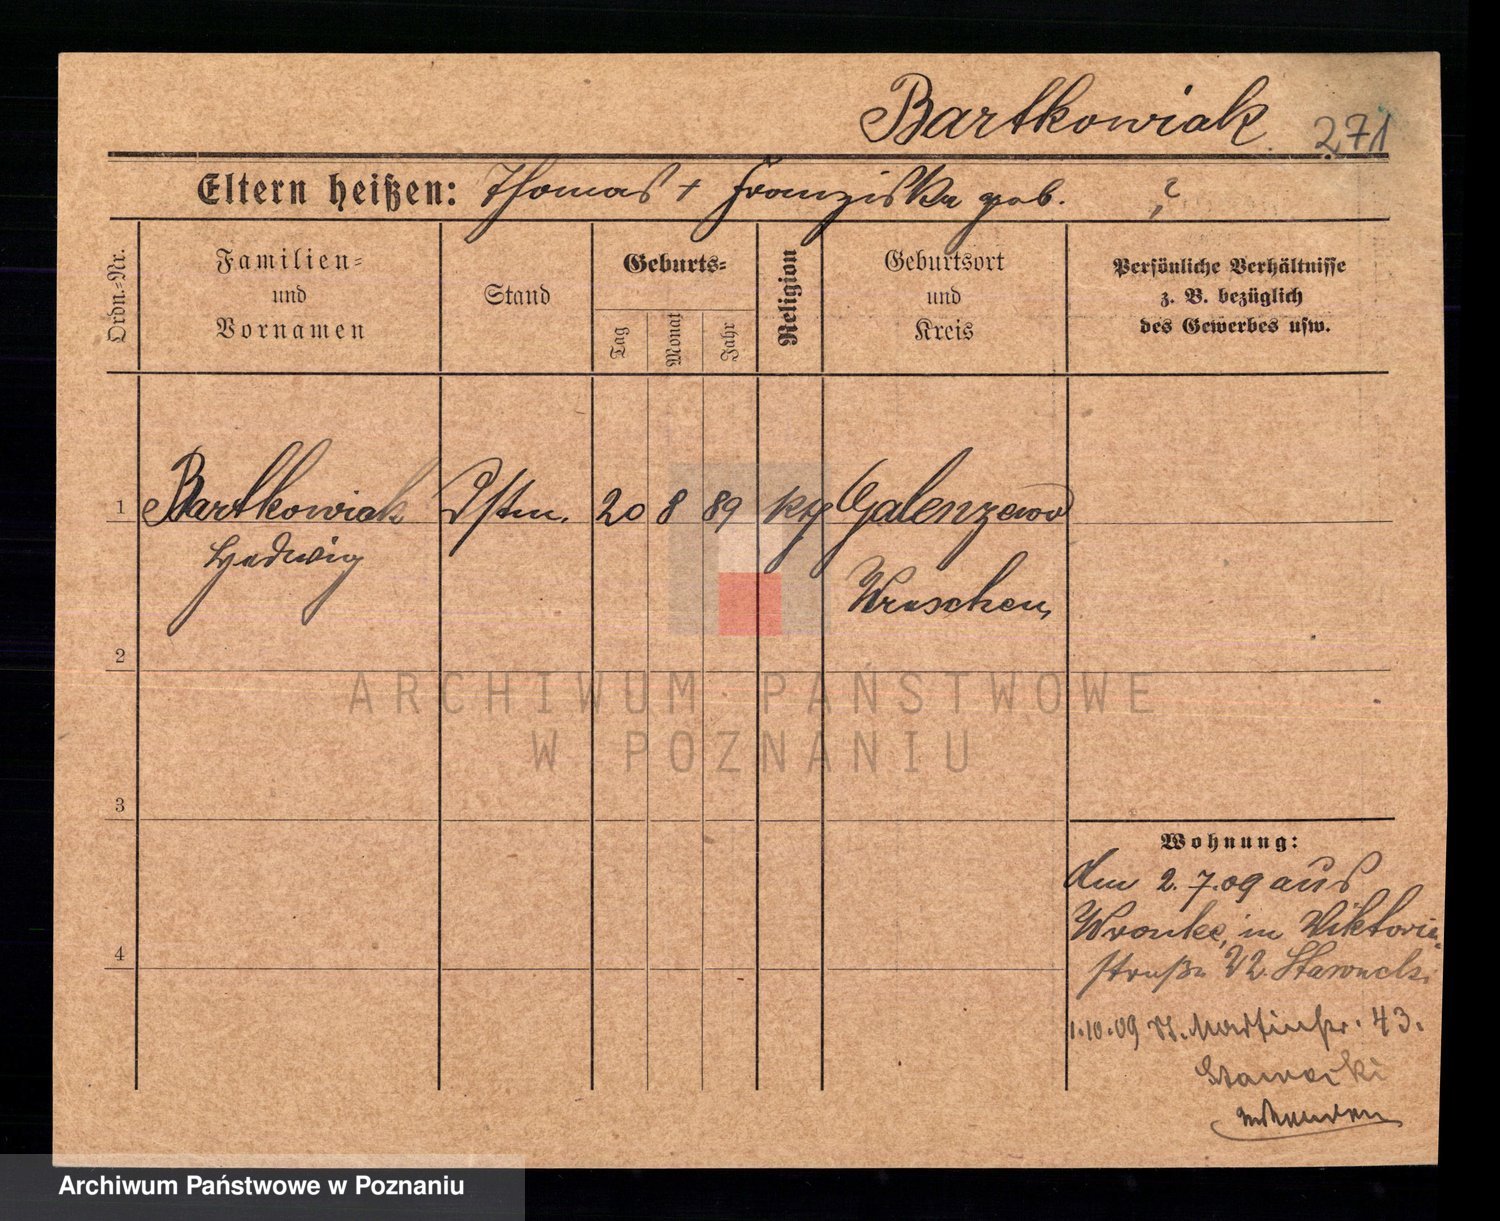 Bartkowiak 271
Eltern heißen: Thomas + Franziska geb. ?
Ordn.-Nr.
Familien=
und
Vornamen
Stand
Geburts=
Tag
Monat
Jahr
Religion
Geburtsort
und
Kreis
Persönliche Verhältnisse
z. B. bezüglich
des Gewerbes usw.
1 Bartkowiak Dstm. 20 8 89 kth Galenzewo
Hedwig
Wreschen
2
3
4
ARCHIWUM PAŃSTWOWE
W POZNANIU
Wohnung:
den 2.7.09 aus
Wronke, in Viktoria
straße 22
1.10.09 St. Martinstr. 43.
Archiwum Państwowe w Poznaniu